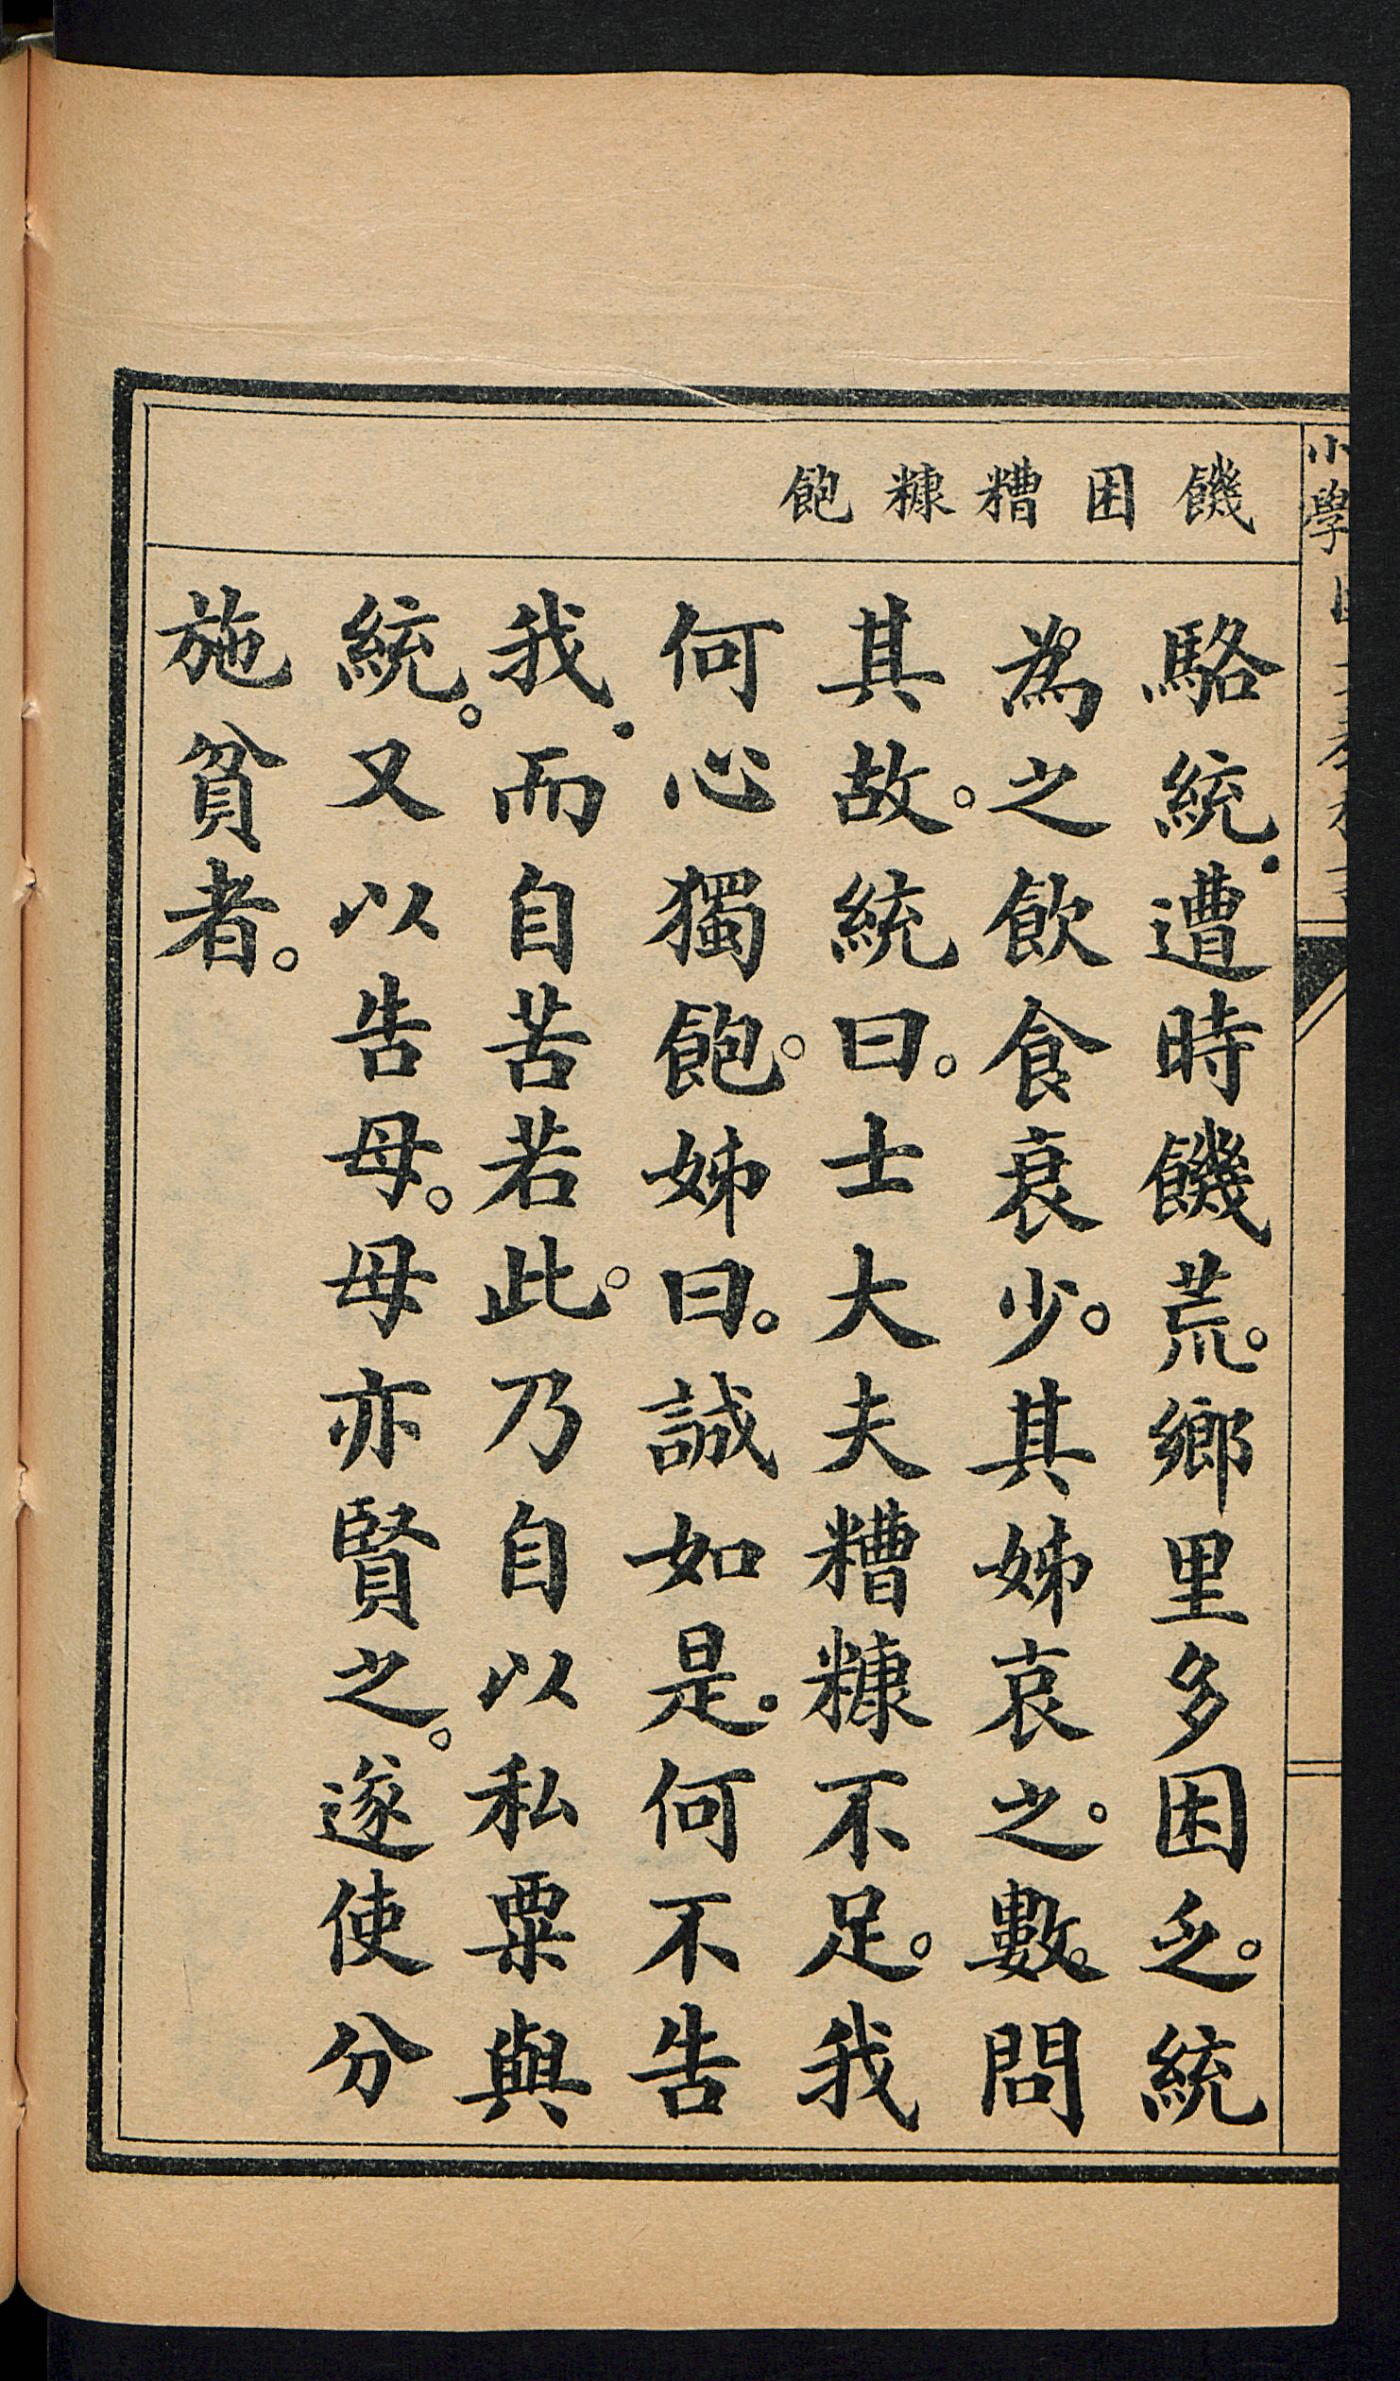 小學
饑困糟糠飽
駱統.遭時饑荒。鄉里多困乏。統
為之飲食衰少。其姊哀之。數。問
其故。統曰。士大夫糟糠不足。我
何心獨飽。姊曰。誠如是.何不告
我.而自苦若此。乃自以私粟與
統。又以告母。母亦賢之。遂使分
施貧者。